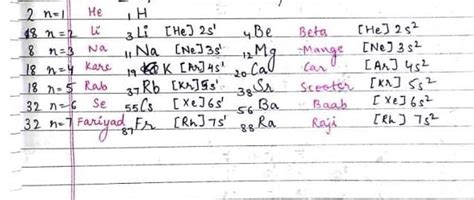 2 n=1 He ₁H
8 n=2 Li ₃Li [He] 2s¹ ₄Be Beta [He] 2s²
8 n=3 Na ₁₁Na [Ne] 3s¹ ₁₂Mg Mange [Ne] 3s²
18 n=4 Kare ₁₉K [Ar] 4s¹ ₂₀Ca Car [Ar] 4s²
18 n=5 Rab ₃₇Rb [Kr] 5s¹ ₃₈Sr Scooter [Kr] 5s²
32 n=6 Se ₅₅Cs [Xe] 6s¹ ₅₆Ba Baab [Xe] 6s²
32 n=7 Fariyad ₈₇Fr [Rn] 7s¹ ₈₈Ra Raji [Rn] 7s²